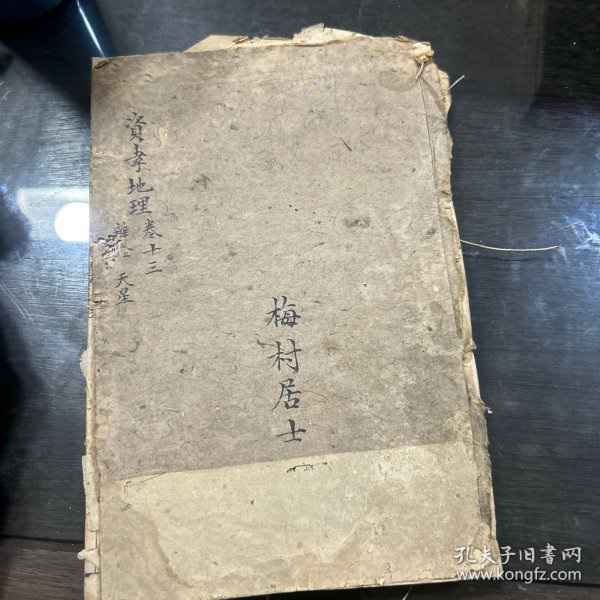 資孝地理卷十三
天星
梅村居士
孔夫子旧書网
www.kongfz.com